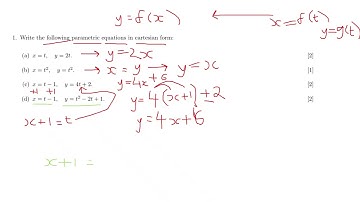 y=f(x) ← x=f(t)
y=g(t)
1. Write the following parametric equations in cartesian form:
(a) x = t, y = 2t. → y=2x [2]
(b) x = t², y = t². → x = y → y=x [1]
(c) x = t − 1, y = 4t + 2. y=4x+6 [2]
+1 +1 y=4(x+1)+2
(d) x = t − 1, y = t² − 2t + 1. [2]
x+1=t y=4x+6
x+1 =